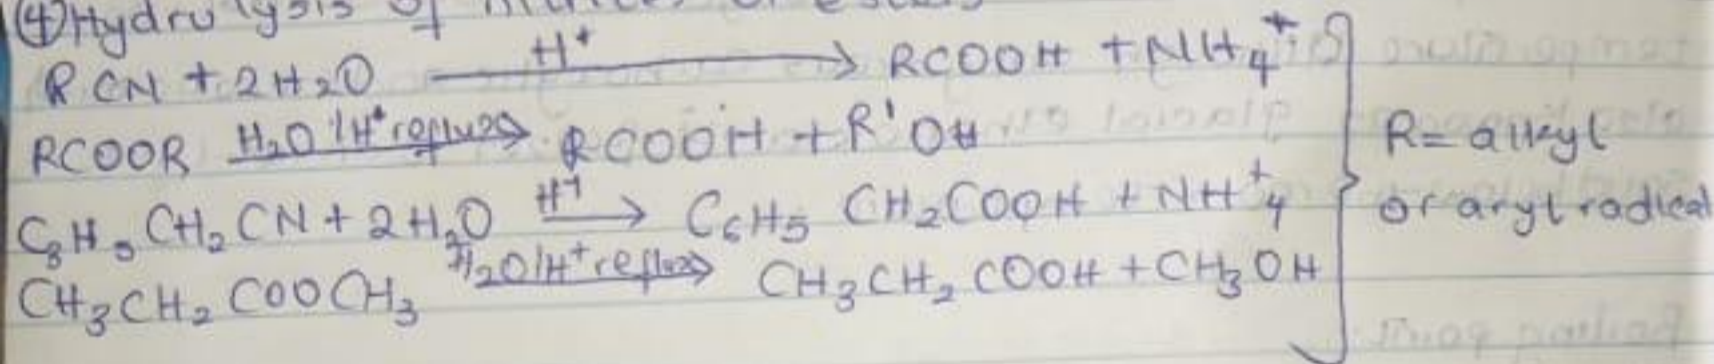 ④ Hydrolysis of nitriles or esters
RCN + 2H₂O H⁺→ RCOOH + NH₄⁺
RCOOR H₂O/H⁺ reflux→ RCOOH + R'OH
C₆H₅CH₂CN + 2H₂O H⁺→ C₆H₅CH₂COOH + NH⁺₄
CH₃CH₂COOCH₃ H₂O/H⁺ reflux→ CH₃CH₂COOH + CH₃OH
R = alkyl
or aryl radical